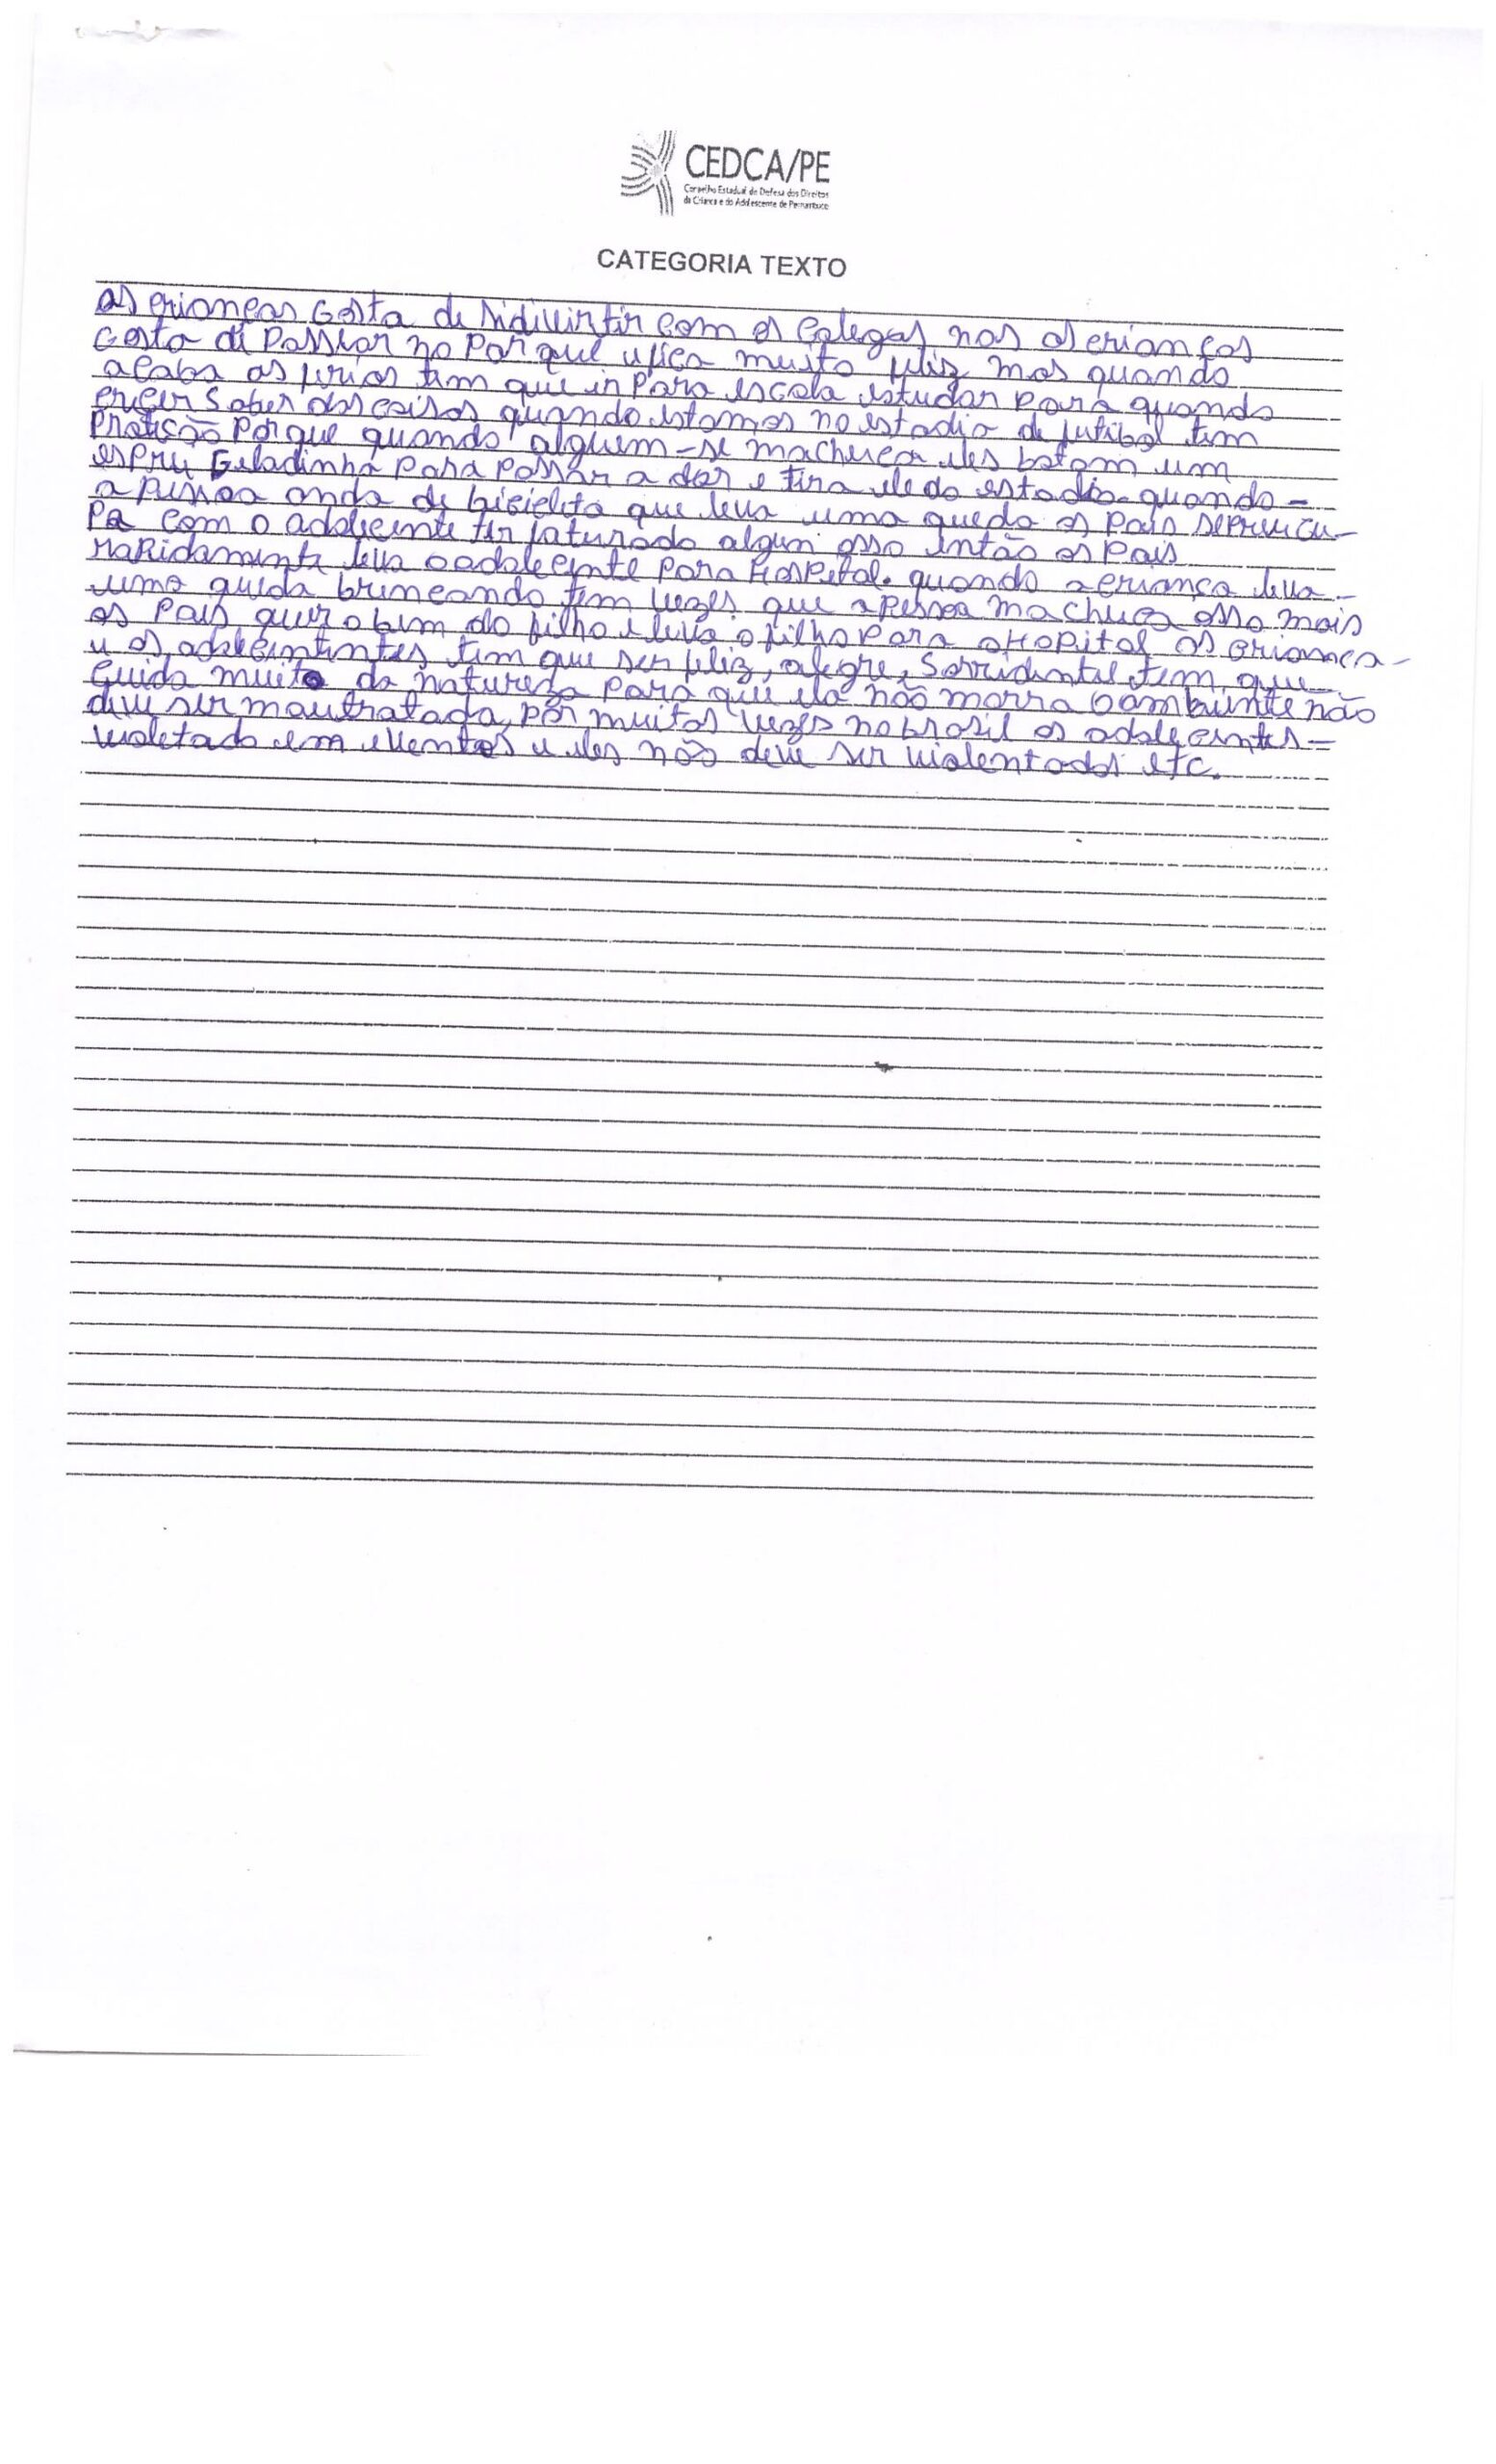 CEDCA/PE
Conselho Estadual de Defesa dos Direitos
da Criança e do Adolescente de Pernambuco
CATEGORIA TEXTO
as crianças Gosta de sidivirtir com os colegas nas as crianças
Gosta de Passear no Parque e fica muito feliz mas quando
acaba as ferias tem que ir Para escola estudar para quando
crecer Saber das coisas quando estamos no estadio de futibol tem
Proteção Porque quando alguem-se machuca eles botam um
espru Geladinha Para Passar a dor e tira ele do estadio quando-
a pessoa anda de bicicleta que leva uma queda os Pais sepreucu-
Pa com o adolecente ter faturado algun osso então os Pais
raPidamente leva o adolecente Para HosPital. quando a criança leva-
uma queda brincando tem vezes que a pessoa machuca osso mais
os Pais quer o bem do filho e leva o filho Para o HoPital as criança-
e os adolecintintes tem que ser feliz, alegre, Sorridente e tem que
Cuida muito da natureza para que ela não morra o ambiente não
deve ser mautratada, por muitas vezes no brasil os adolecentes-
violetado em eventos e eles não deve ser violentados etc.